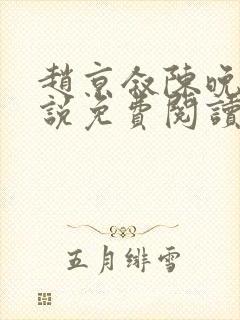 趙京叙陳晚
說免費閱讀
五月緋雪